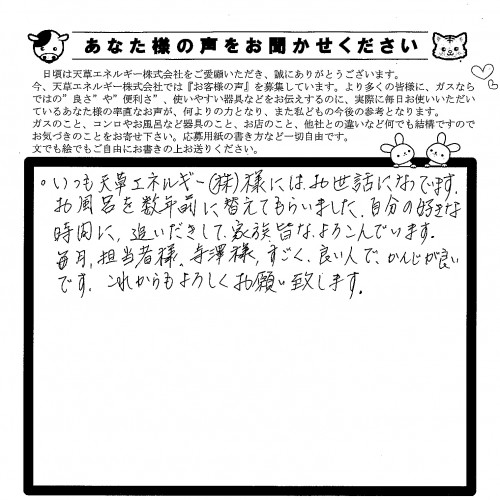 あなた様の声をお聞かせください
日頃は天草エネルギー株式会社をご愛顧いただき、誠にありがとうございます。
今、天草エネルギー株式会社では『お客様の声』を募集しています。より多くの皆様に、ガスなら
ではの”良さ”や”便利さ”、使いやすい器具などをお伝えするのに、実際に毎日お使いいただい
ているあなた様の率直なお声が、何よりの力となり、また私どもの今後の参考となります。
ガスのこと、コンロやお風呂など器具のこと、お店のこと、他社との違いなど何でも結構ですので
お気づきのことをお寄せ下さい。応募用紙の書き方など一切自由です。
文でも絵でもご自由にお書きの上お送りください。
。いつも天草エネルギー(株)様にはお世話になってます。
お風呂を数年前に替えてもらいました、自分の好きな
時間に、追いだきして家族皆なよろこんでいます。
毎月、担当者様、寺澤様、すごく、良い人で、かんじが良い
です。これからもよろしくお願い致します。